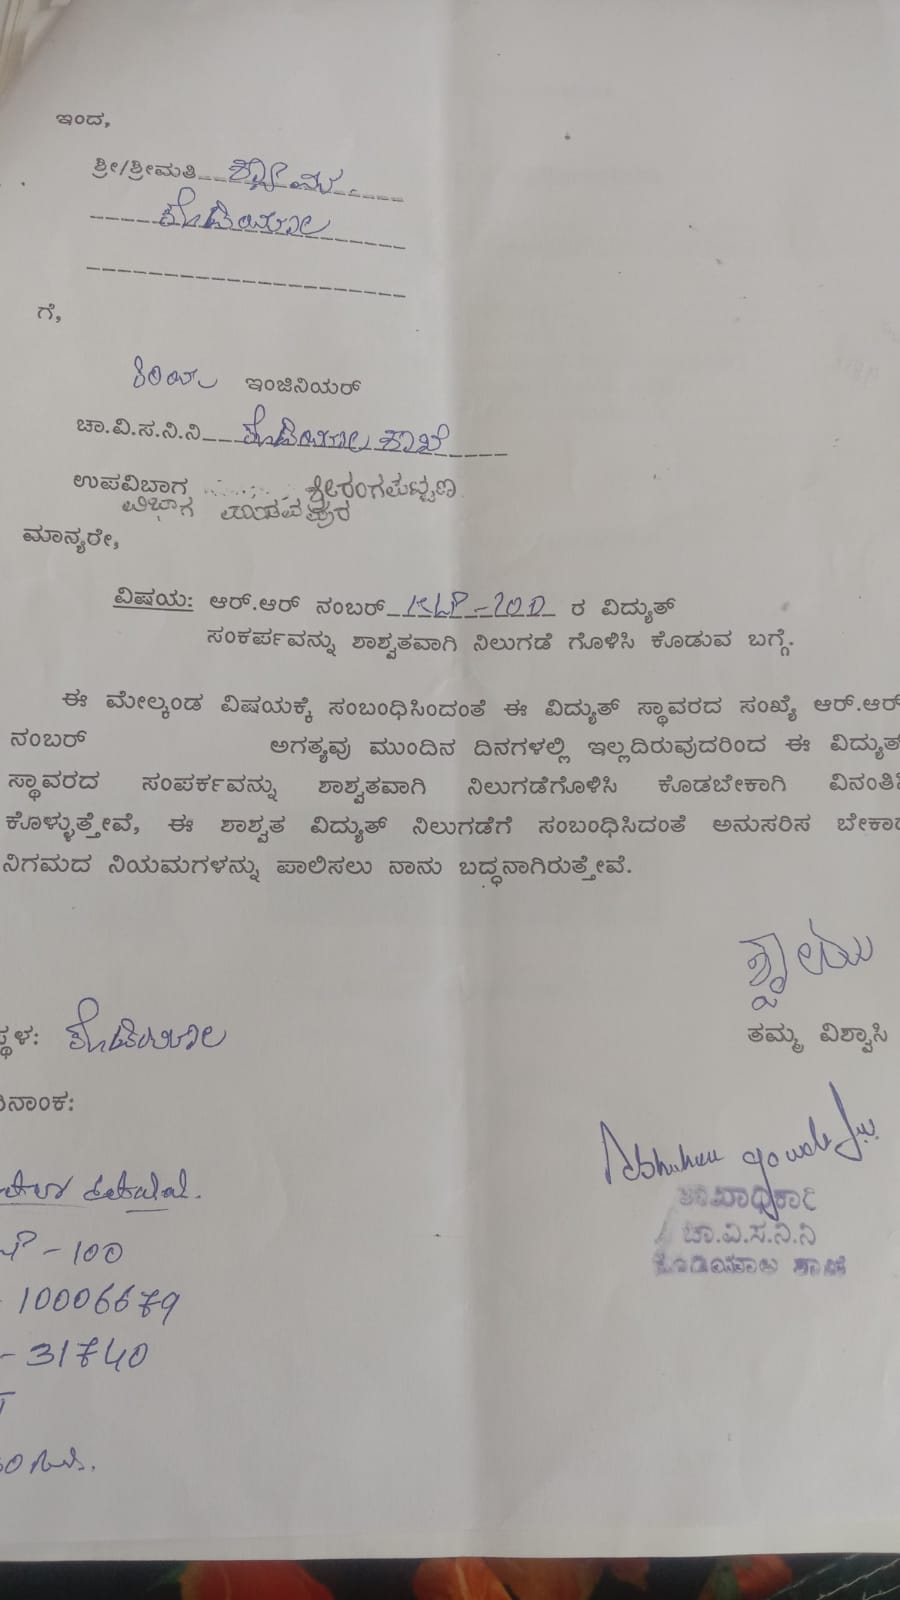 ಇಂದ,
ಶ್ರೀ/ಶ್ರೀಮತಿ
ಕೊಡಿಯಾಲ
ಗೆ,
ಕಿರಿಯ ಇಂಜಿನಿಯರ್
ಚಾ.ವಿ.ಸ.ನಿ.ನಿ ಕೊಡಿಯಾಲ ಶಾಖೆ
ಉಪವಿಬಾಗ ಶ್ರೀರಂಗಪಟ್ಟಣ
ವಿಭಾಗ
ಮಾನ್ಯರೇ,
ವಿಷಯ: ಆರ್.ಆರ್ ನಂಬರ್ KLP-100 ರ ವಿದ್ಯುತ್
ಸಂಕರ್ಪವನ್ನು ಶಾಶ್ವತವಾಗಿ ನಿಲುಗಡೆ ಗೊಳಿಸಿ ಕೊಡುವ ಬಗ್ಗೆ.
ಈ ಮೇಲ್ಕಂಡ ವಿಷಯಕ್ಕೆ ಸಂಬಂಧಿಸಿಂದಂತೆ ಈ ವಿದ್ಯುತ್ ಸ್ಥಾವರದ ಸಂಖ್ಯೆ ಆರ್.ಆರ್
ನಂಬರ್ ಅಗತ್ಯವು ಮುಂದಿನ ದಿನಗಳಲ್ಲಿ ಇಲ್ಲದಿರುವುದರಿಂದ ಈ ವಿದ್ಯುತ್
ಸ್ಥಾವರದ ಸಂಪರ್ಕವನ್ನು ಶಾಶ್ವತವಾಗಿ ನಿಲುಗಡೆಗೊಳಿಸಿ ಕೊಡಬೇಕಾಗಿ
ಕೊಳ್ಳುತ್ತೇವೆ, ಈ ಶಾಶ್ವತ ವಿದ್ಯುತ್ ನಿಲುಗಡೆಗೆ ಸಂಬಂಧಿಸಿದಂತೆ ಅನುಸರಿಸ
ನಿಗಮದ ನಿಯಮಗಳನ್ನು ಪಾಲಿಸಲು ನಾನು ಬದ್ಧನಾಗಿರುತ್ತೇವೆ.
ಸ್ಥಳ: ಕೊಡಿಯಾಲ
ತಮ್ಮ ವಿಶ್ವಾಸಿ
ಶಾಖಾಧಿಕಾರಿ
ಚಾ.ವಿ.ಸ.ನಿ.ನಿ
ಕೊಡಿಯಾಲ ಶಾಖೆ
- 100
10006679
- 31740